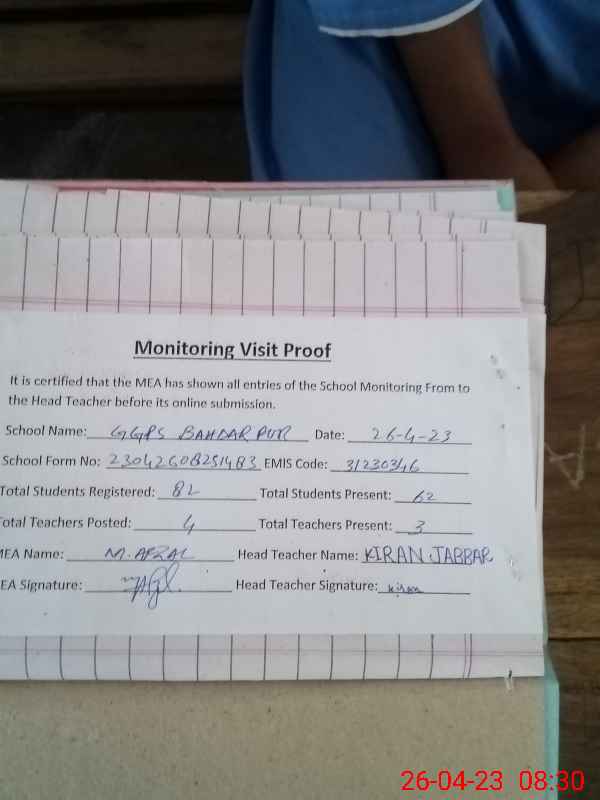 Monitoring Visit Proof
It is certified that the MEA has shown all entries of the School Monitoring From to
the Head Teacher before its online submission.
School Name: GGPS BAHDARPUR Date: 26-4-23
School Form No: 23042608251483 EMIS Code: 31230346
Total Students Registered: 82 Total Students Present: 62
Total Teachers Posted: 4 Total Teachers Present: 3
MEA Name: M. AFZAL Head Teacher Name: KIRAN JABBAR
EA Signature: Head Teacher Signature: kiran
26-04-23 08:30